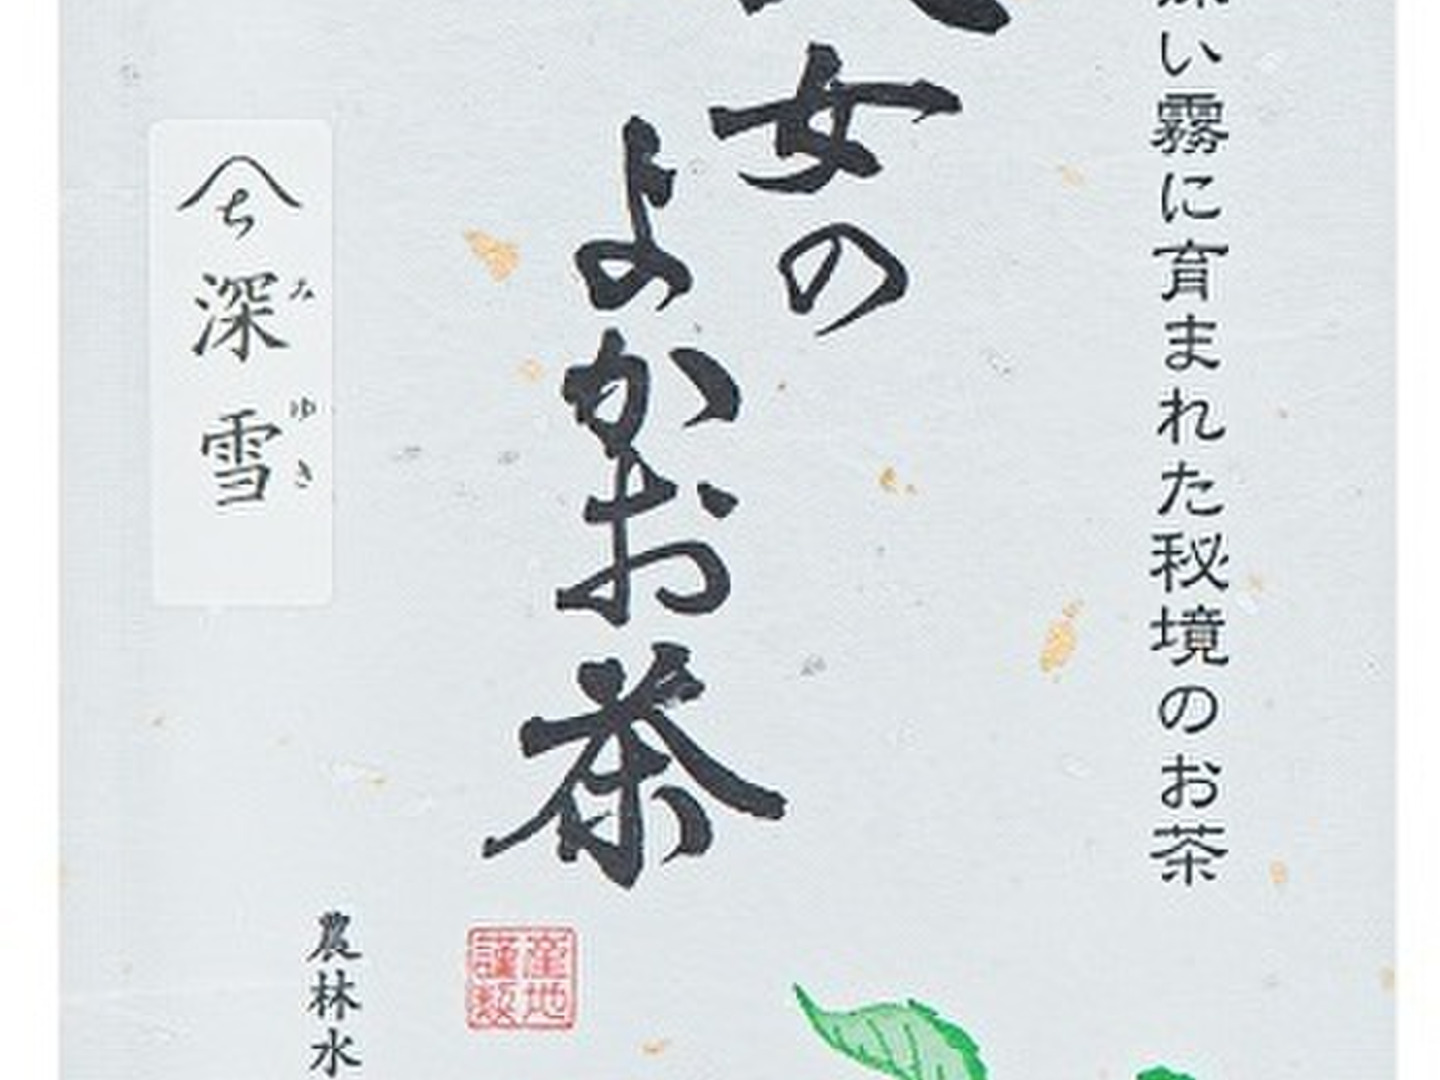 い霧に育まれた秘境のお茶
女の
よかお茶
産地
謹製
ち
深雪
みゆき
農林水